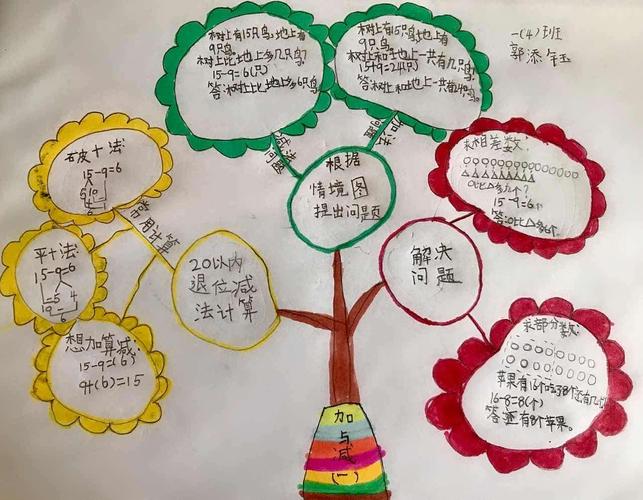 一(4)班
郭添钰
树上有15只鸟,地上有
9只鸟。
树上比地上多几只鸟?
15-9=6(只)
答:树上比地上多6只鸟。
树上有15只鸟,地上有
9只鸟。
树上和地上一共有几只鸟?
15+9=24(只)
答:树上和地上一共有24只鸟。
减法
问题
加法
问题
根据
情境图
提出问题
破十法:
15-9=6
常用计算
平十法:
15-9=6
想加算减:
15-9=(6)
9+(6)=15
20以内
退位减
法计算
解决
问题
求相差数:
○比△多几个?
15-9=6个
答:○比△多6个。
求部分数:
16-8=8(个)
答:还有8个苹果。
加
与
减
(一)